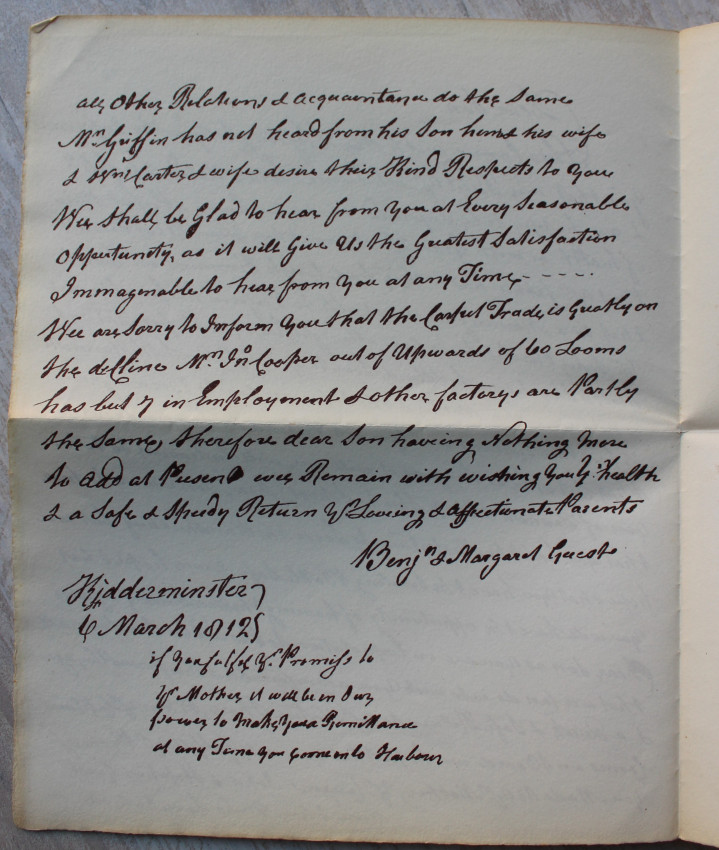 all Other Relations & acquaintance do the Same
Mr. Griffin has not heard from his Son him & his wife
& Wm. Carter & wife desire their Kind Respects to You
Wee Shall be Glad to hear from You at Every Seasonable
Opportunity, as it will Give Us the Greatest Satisfaction
Immagenable to hear from You at any Time - - - -.
Wee are Sorry to Inform You that the Carpet Trade is Greatly on
the decline Mr. Jno Cooper out of Upwards of 60 Looms
has but 7 in Employment & other factorys are Partly
the Same, therefore dear Son haveing Nothing More
to add at Present wee Remain with wishing You Yr. health
& a Safe & Speedy Return Yr Loveing & affectionate Parents
Benjn & Margaret Guest
Kidderminster
6 March 1812
if You fulfil Yr. Promiss to
Yr Mother it will be in Our
power to Make You a Remittance
at any Time You come into Harbour